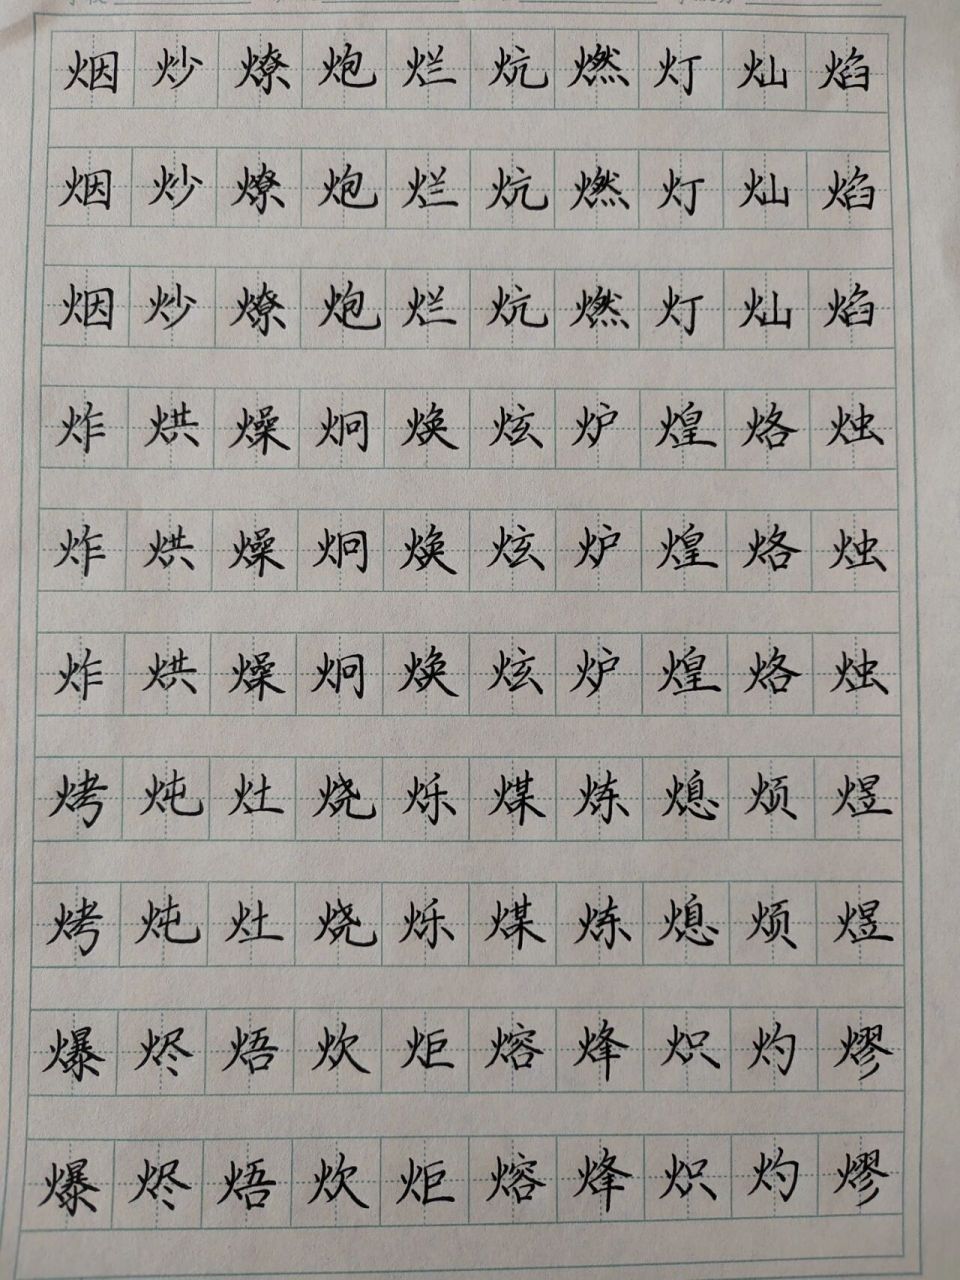 烟炒燎炮烂炕燃灯灿焰
烟炒燎炮烂炕燃灯灿焰
烟炒燎炮烂炕燃灯灿焰
炸烘燥炯焕炫炉煌烙烛
炸烘燥炯焕炫炉煌烙烛
炸烘燥炯焕炫炉煌烙烛
烤炖灶烧烁煤炼熄烦煜
烤炖灶烧烁煤炼熄烦煜
爆烬焐炊炬熔烽炽灼熮
爆烬焐炊炬熔烽炽灼熮